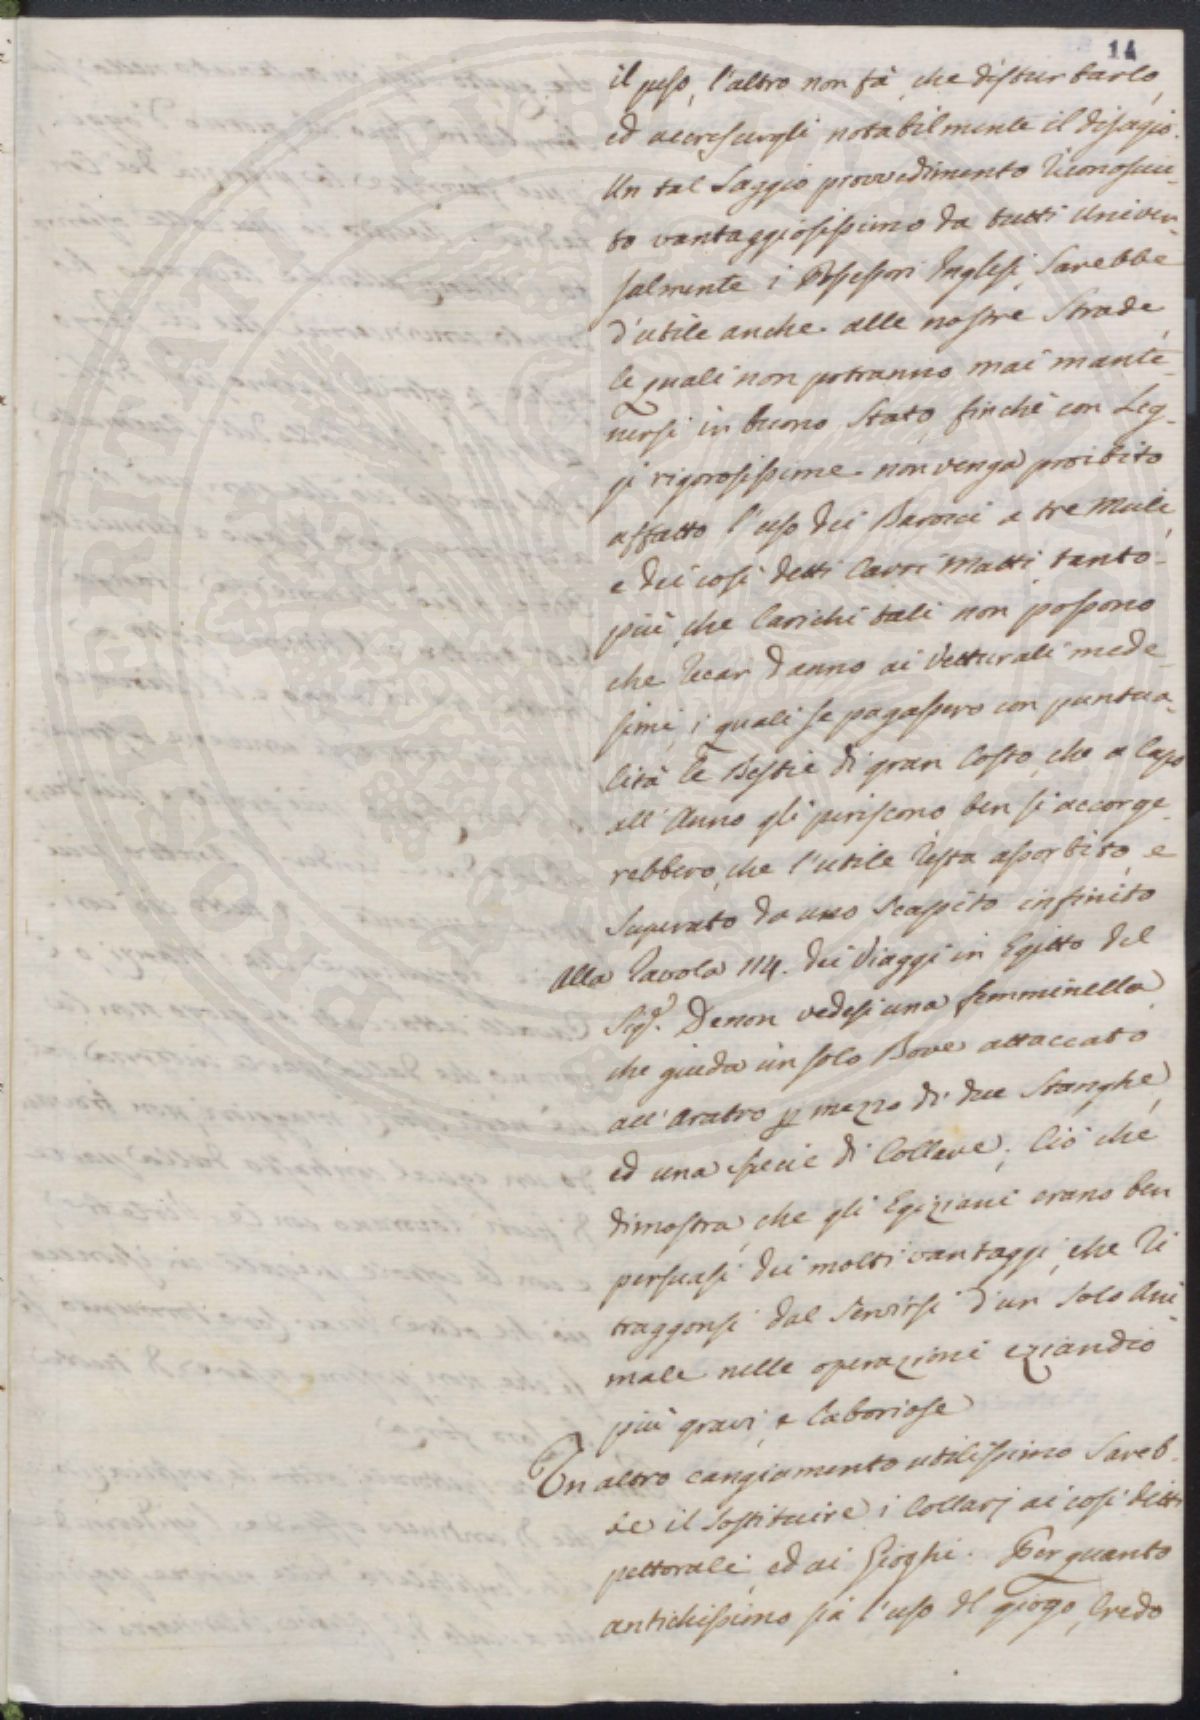 14
il peso, l'altro non fà, che disturbarlo,
ed accrescergli notabilmente il disagio.
Un tal Saggio provvedimento riconosciu-
to vantaggiosissimo da tutti univer-
salmente i Possessori Inglesi, Sarebbe
d'utile anche alle nostre Strade
le quali non potranno mai mante-
nersi in buono Stato, finchè con Leg-
gi rigorosissime non venga proibito
affatto l'uso dei Barocci a tre Muli,
e dei così detti Carri Matti tanto-
più, che Carichi tali non possono
che recar danno ai Vetturali mede-
simi, i quali se pagassero con puntua-
lità le Bestie di gran Costo, che a Capo
all'Anno gli periscono ben si accorge-
rebbero, che l'utile resta assorbito, e
Superato da uno Scapito infinito
Alla Tavola 114. dei Viaggi in Egitto del
Sig.r Denon vedesi una femminella
che guida un solo Bove attaccato
all'Aratro p mezzo di due Stanghe,
ed una specie di Collare; Ciò che
dimostra, che gli Egiziani erano ben
persuasi dei molti vantaggi, che ri
traggonsi dal Servirsi d'un Solo Ani
male nelle operazioni eziandio
più gravi, e laboriose
Un altro cangiamento utilissimo Sareb-
be il Sostituire i Collari ai così detti
pettorali, ed ai Gioghi. Per quanto
antichissimo sia l'uso del giogo, Credo
PROSPERITATI PUBLICAE